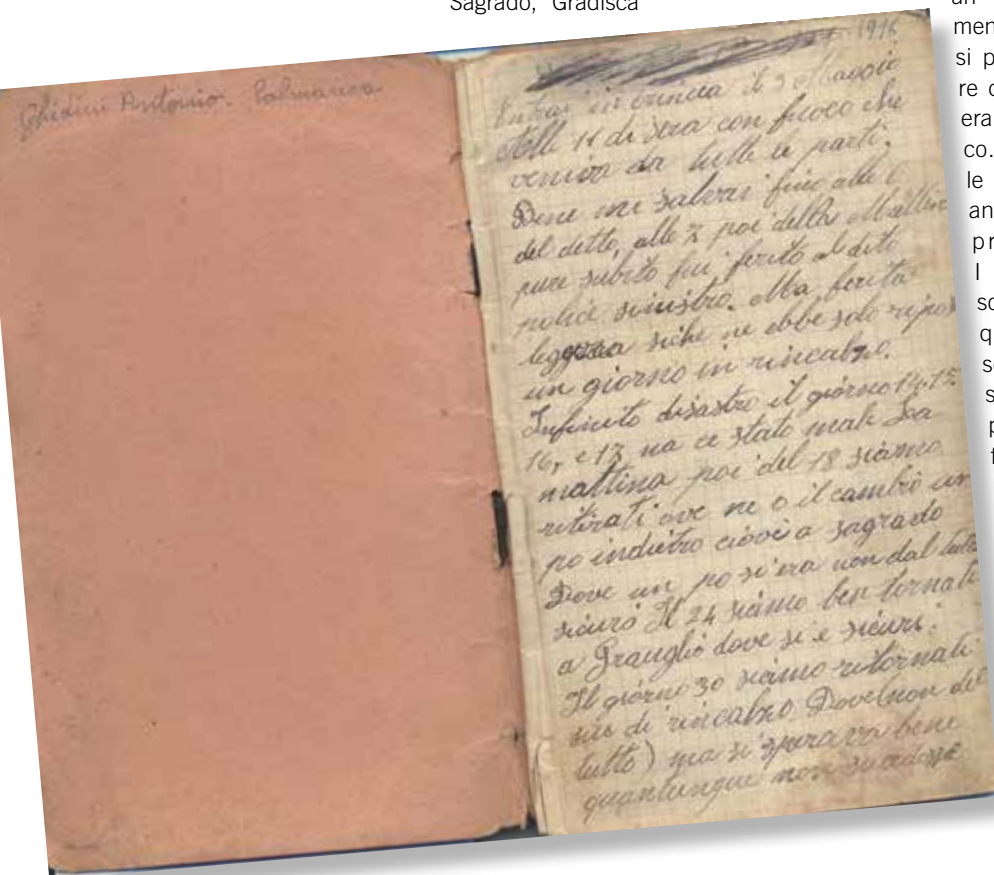 Sagrado, Gradisca
an
men
si p
re
era
co.
le
an
pr
I
so
q
s
p
f
Ghidini Antonio. Palmanova
1916
Entrai in trincia il 3 Maggio
Alle 11 di sera con fuoco che
veniva da tutte le parti.
Bene mi salvai fino alle
del detto, alle 7 poi della Mattina
pure subito fui ferito al dito
police sinistro. Ma ferita
leggera siche ne ebbe solo riposo
un giorno in rincalzo.
Infinito disastro il giorno 14, 15
16, e 17 na ce stato mali La
mattina poi del 18 siamo
ritirati ove ne o il cambio un
po indietro ciove a sagrado
Dove un po si era non dal tutto
sicuro Il 24 siamo ben tornati
a Grauglio dove si e sicuri.
Il giorno 30 siamo ritornati
sui di rincalzo Dove (non del
tutto) ma si sperava bene
quantunque non sucedesse